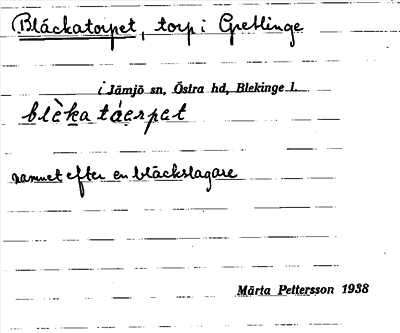 Bläckatorpet, torp i Gretlinge
i Jämjö sn, Östra hd, Blekinge l.
blɛ̀ka táɛrpɛt
namnet efter en bläckslagare
Märta Pettersson 1938